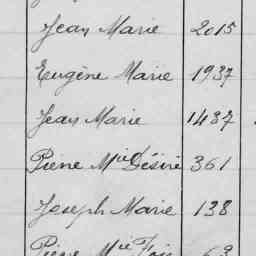 Jean Marie 2015
Eugène Marie 1937
Jean Marie 1437
Pierre Mie Désiré 361
Joseph Marie 138
Pierre Mie 63